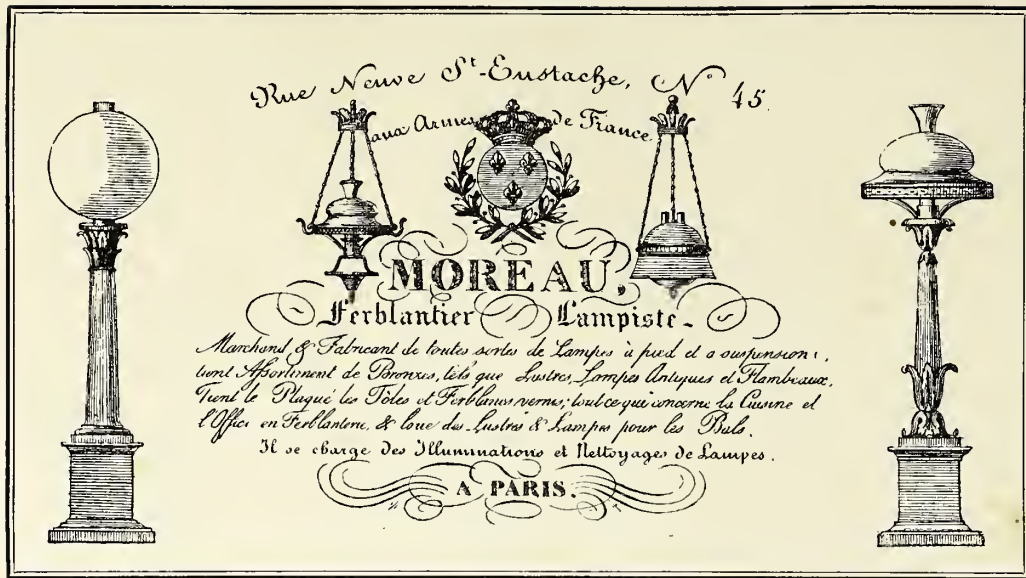 Rue Neuve St-Eustache, N° 45.
aux Armes de France
MOREAU,
Ferblantier Lampiste.
Marchand & Fabricant de toutes sortes de Lampes à pied et a suspensions,
tient Assortiment de Bronzes, tels que Lustres, Lampes Antiques et Flambeaux,
Tient le Plaqué les Tôles et Ferblancs vernis; tout ce qui concerne la Cuisine et
l'Office en Ferblanterie, & loue des Lustres & Lampes pour les Bals.
Il se charge des Illuminations et Nettoyages de Lampes.
A PARIS.